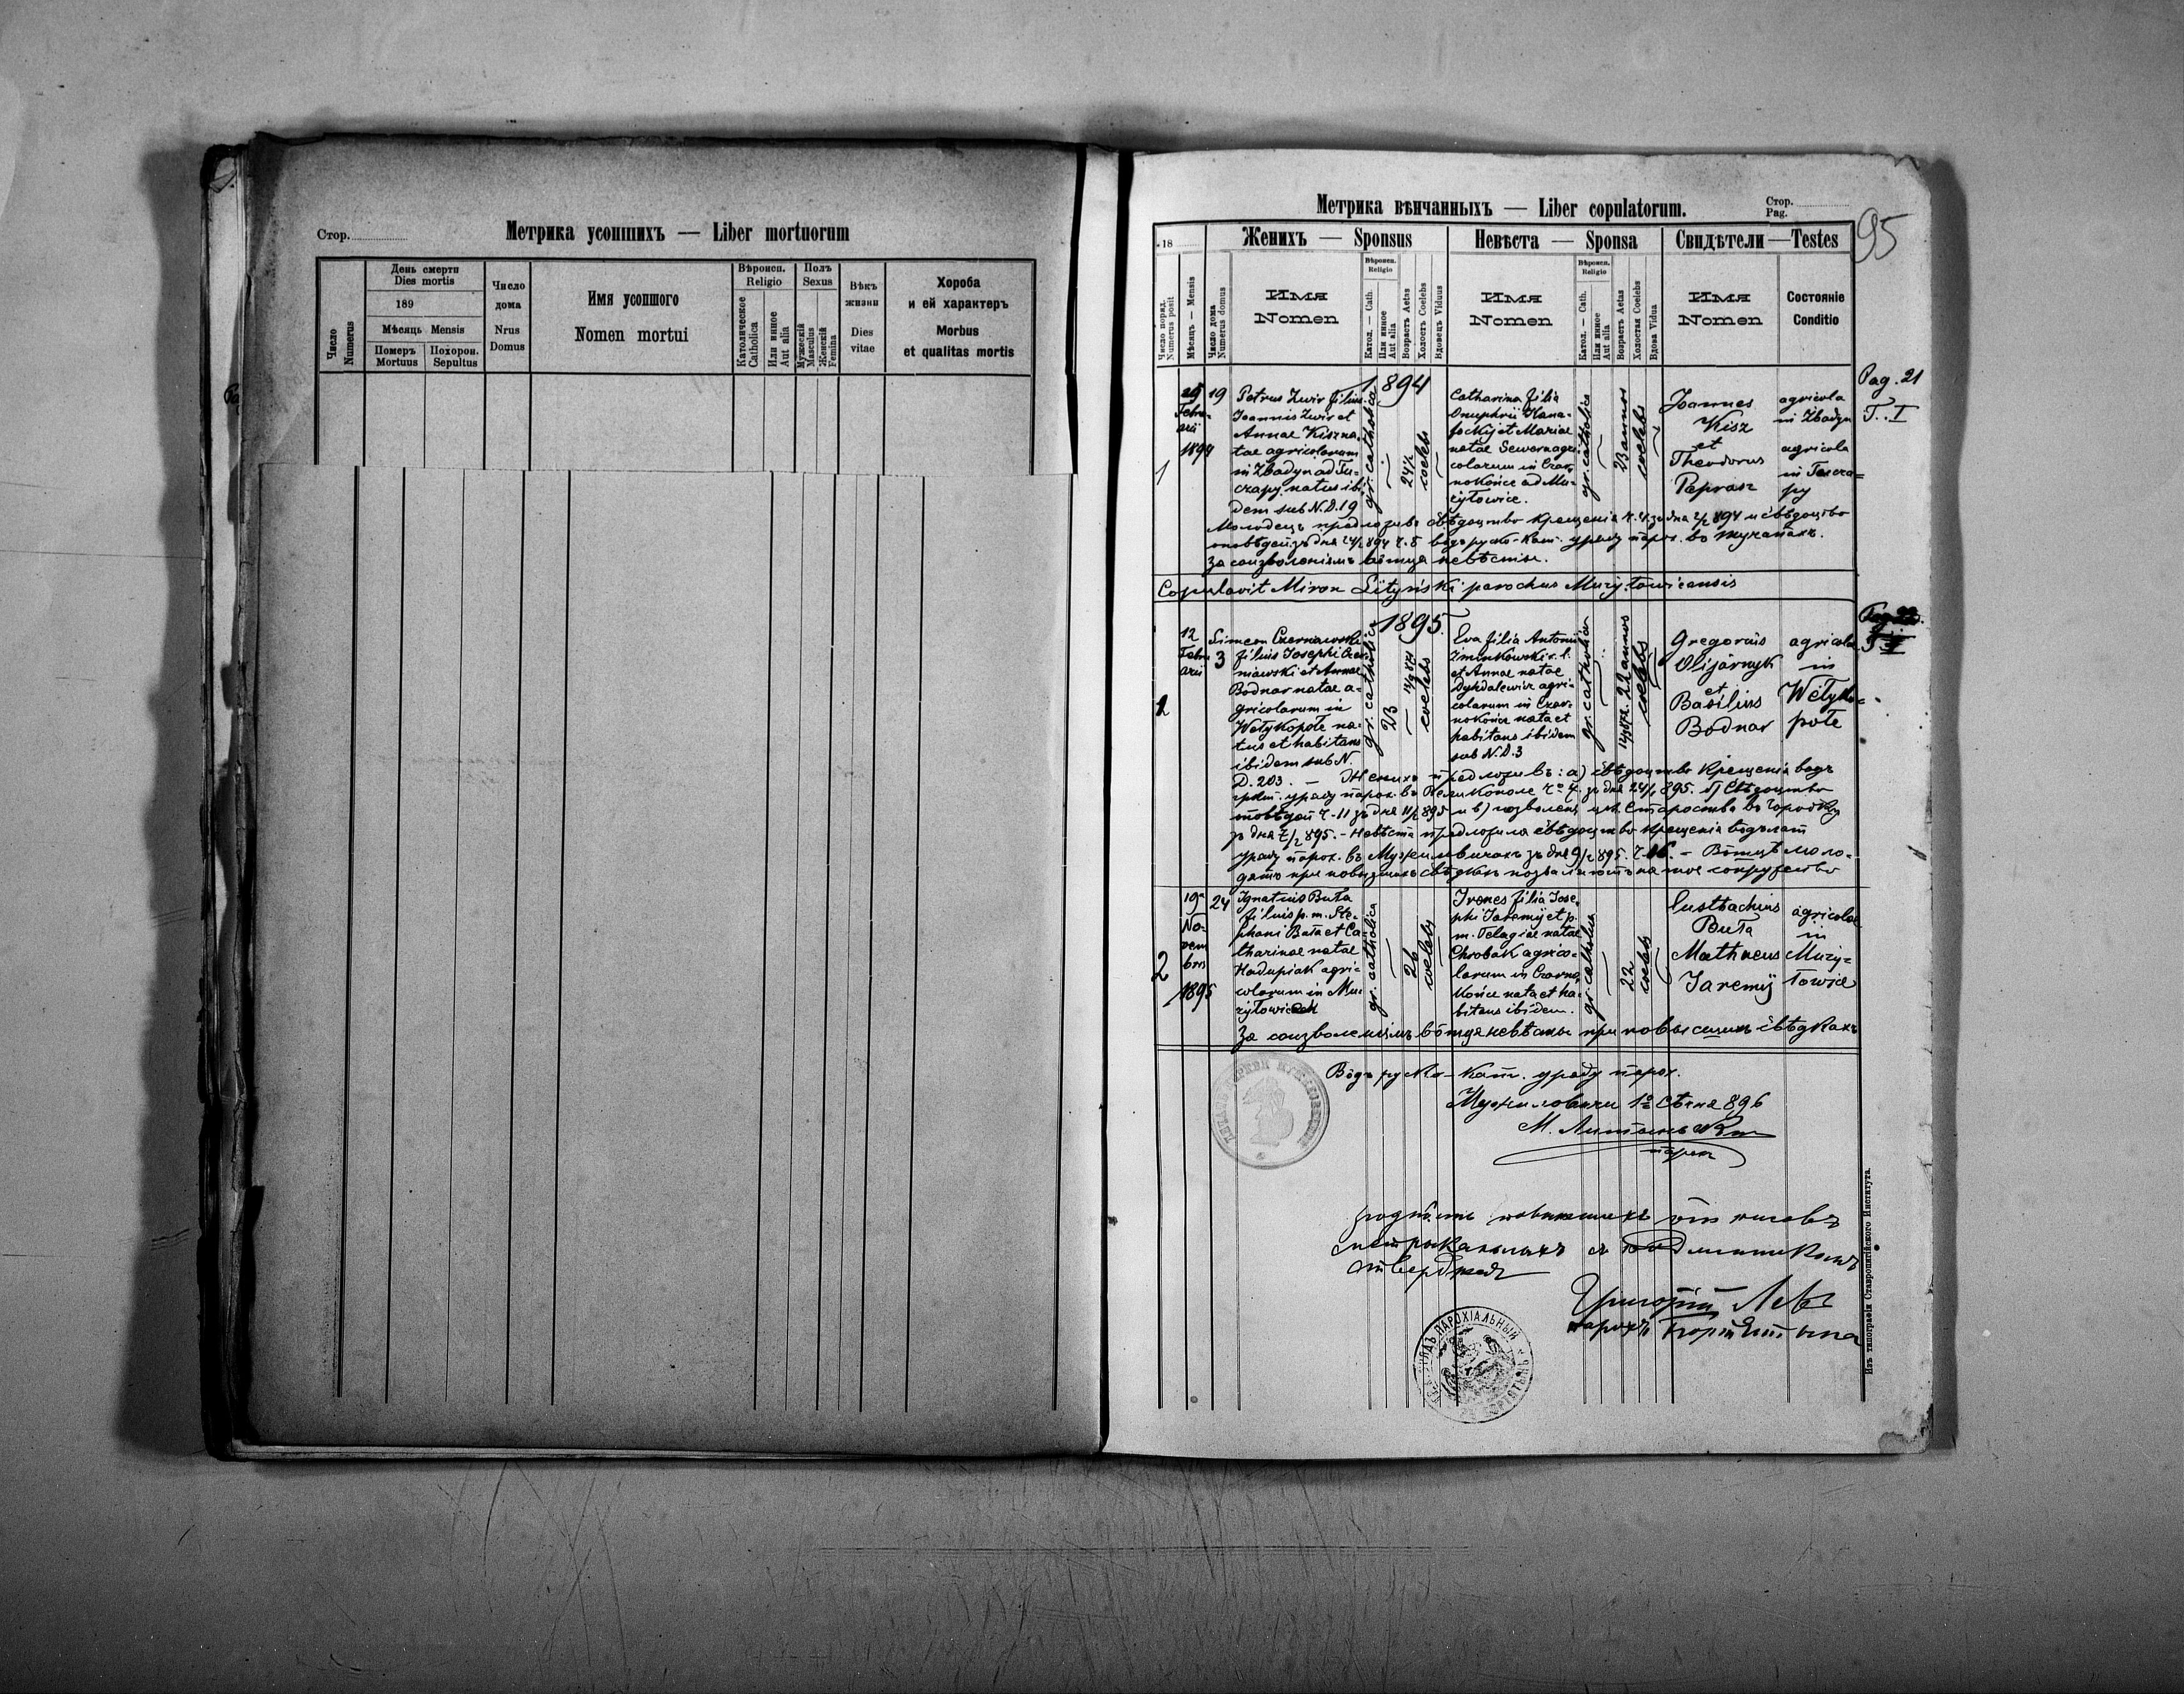 Стор.
Метрика усопшихъ — Liber mortuorum
Число
Numerus
День смерти
Dies mortis
189
Мѣсяць Mensis
Померъ
Mortuus
Похорон.
Sepultus
Число
дома
Nrus
Domus
Имя усопшого
Nomen mortui
Вѣроисп.
Religio
Католическое
Catholica
Или инное
Aut alia
Полъ
Sexus
Мужескій
Masculus
Женскій
Femina
Вѣкъ
жизни
Dies
vitae
Хороба
и ей характеръ
Morbus
et qualitas mortis
Метрика вѣнчанныхъ — Liber copulatorum.
Стор.
Pag.
95
18
Женихъ — Sponsus
Невѣста — Sponsa
Свидѣтели — Testes
Число поряд.
Numerus posit
Мѣсяць — Mensis
Число дома
Numerus domus
Имя
Nomen
Вѣроисп.
Religio
Катол. — Cath.
Или инное
Aut alia
Возрастъ Aetas
Холостъ Coelebs
Вдовецъ Viduus
Имя
Nomen
Вѣроисп.
Religio
Катол. — Cath.
Или инное
Aut alia
Возрастъ Aetas
Холостая Coelebs
Вдова Vidua
Имя
Nomen
Состояніе
Conditio
1894
Pag. 21
T. I
1
Febru-
arii
1894
19
Petrus Zwir filius
Joannis Zwir et
Annae Kisz na-
tae agricolarum
in Zbadyn ad Tu-
czapy natus ibi-
dem sub N.D. 19
gr. catholica
24 1/2
coelebs
Catharina filia
Onuphrii Hana-
et Mariae
natae Sewern agri-
colarum in Czar-
nokońce ad Mu-
żyłowice.
gr. catholica
23 annos
coelebs
Joannes
Kisz
et
Theodorus
Paprasz
agricola
in Zbadyn
agricola
in Tucza-
py
Молодець предложивъ свѣдоцтво крещенія ч. 4 зъ дня 2/2 894 и свѣдоцтво
оповѣдей зъ дня 24/2 894 ч. 8 водъ русско-кат. уряду парох. во Тучапахъ.
За соизволеніемъ вотця невѣсты.
Copulavit Miron Lityński parochus Mużyłowicensis
1895
1
12
Febru
arii
3
Simeon Czerniawski
filius Josephi Czer-
niawski et Annae
Bodnar natae a-
gricolarum in
Wełykopole na-
tus et habitans
ibidem sub N.
D. 203.
gr. catholica
23
coelebs
Eva filia Antonii
Zminkowski r. l.
et Annae natae
Dyhdalewicz agri-
colarum in Czar-
nokońce nata et
habitans ibidem
sub N.D. 3
gr. catholica
22 annos
coelebs
Gregorius
Olijarnyk
et
Basilius
Bodnar
agricolae
in
Wełyko-
pole
Женихъ предложивъ: а) свѣдоцтво крещенія водъ
уряду парох. въ Великополе ч. 4 зъ дня 24/1 895. б) Свѣдоцтво
оповѣдей ч. 11 зъ дня 11/2 895 и в) позволеня цѣс. Староства въ Городку
зъ дня 7/2 895. – Невѣста предложила свѣдоцтво крещенія водъ лат
уряду парох. въ Мужиловичахъ зъ дня 9/2 895. – Вотцѣ моло-
дятъ при повысшихъ свѣдкахъ позваляютъ на тое супружество
2
19
No-
vem
bris
1895
24
Ignatius Buta
filius p. m. Ste-
phani Buta et Ca-
tharinae natae
Hadupiak agri-
colarum in Mu-
żyłowicach
gr. catholica
26
coelebs
Irenes filia Jose-
phi Jaremij et p.
m. Pelagiae natae
Chrobak agrico-
larum in Czarno-
końce nata et ha-
bitans ibidem.
gr. catholica
22
coelebs
Eustachius
Buta
Mathaeus
Jaremij
agricolae
in
Muży-
łowice
За соизволеніемъ вотця невѣсты при повысшихъ свѣдкахъ
Водъ руско-кат. уряду парох.
Мужиловичи 1º Сѣчня 896
М. Литынскій
парох
Григорій Левъ
парохъ
УРЯДЪ ПАРОХІАЛЬНЫЙ
Изъ типографіи Ставропигійского Института.